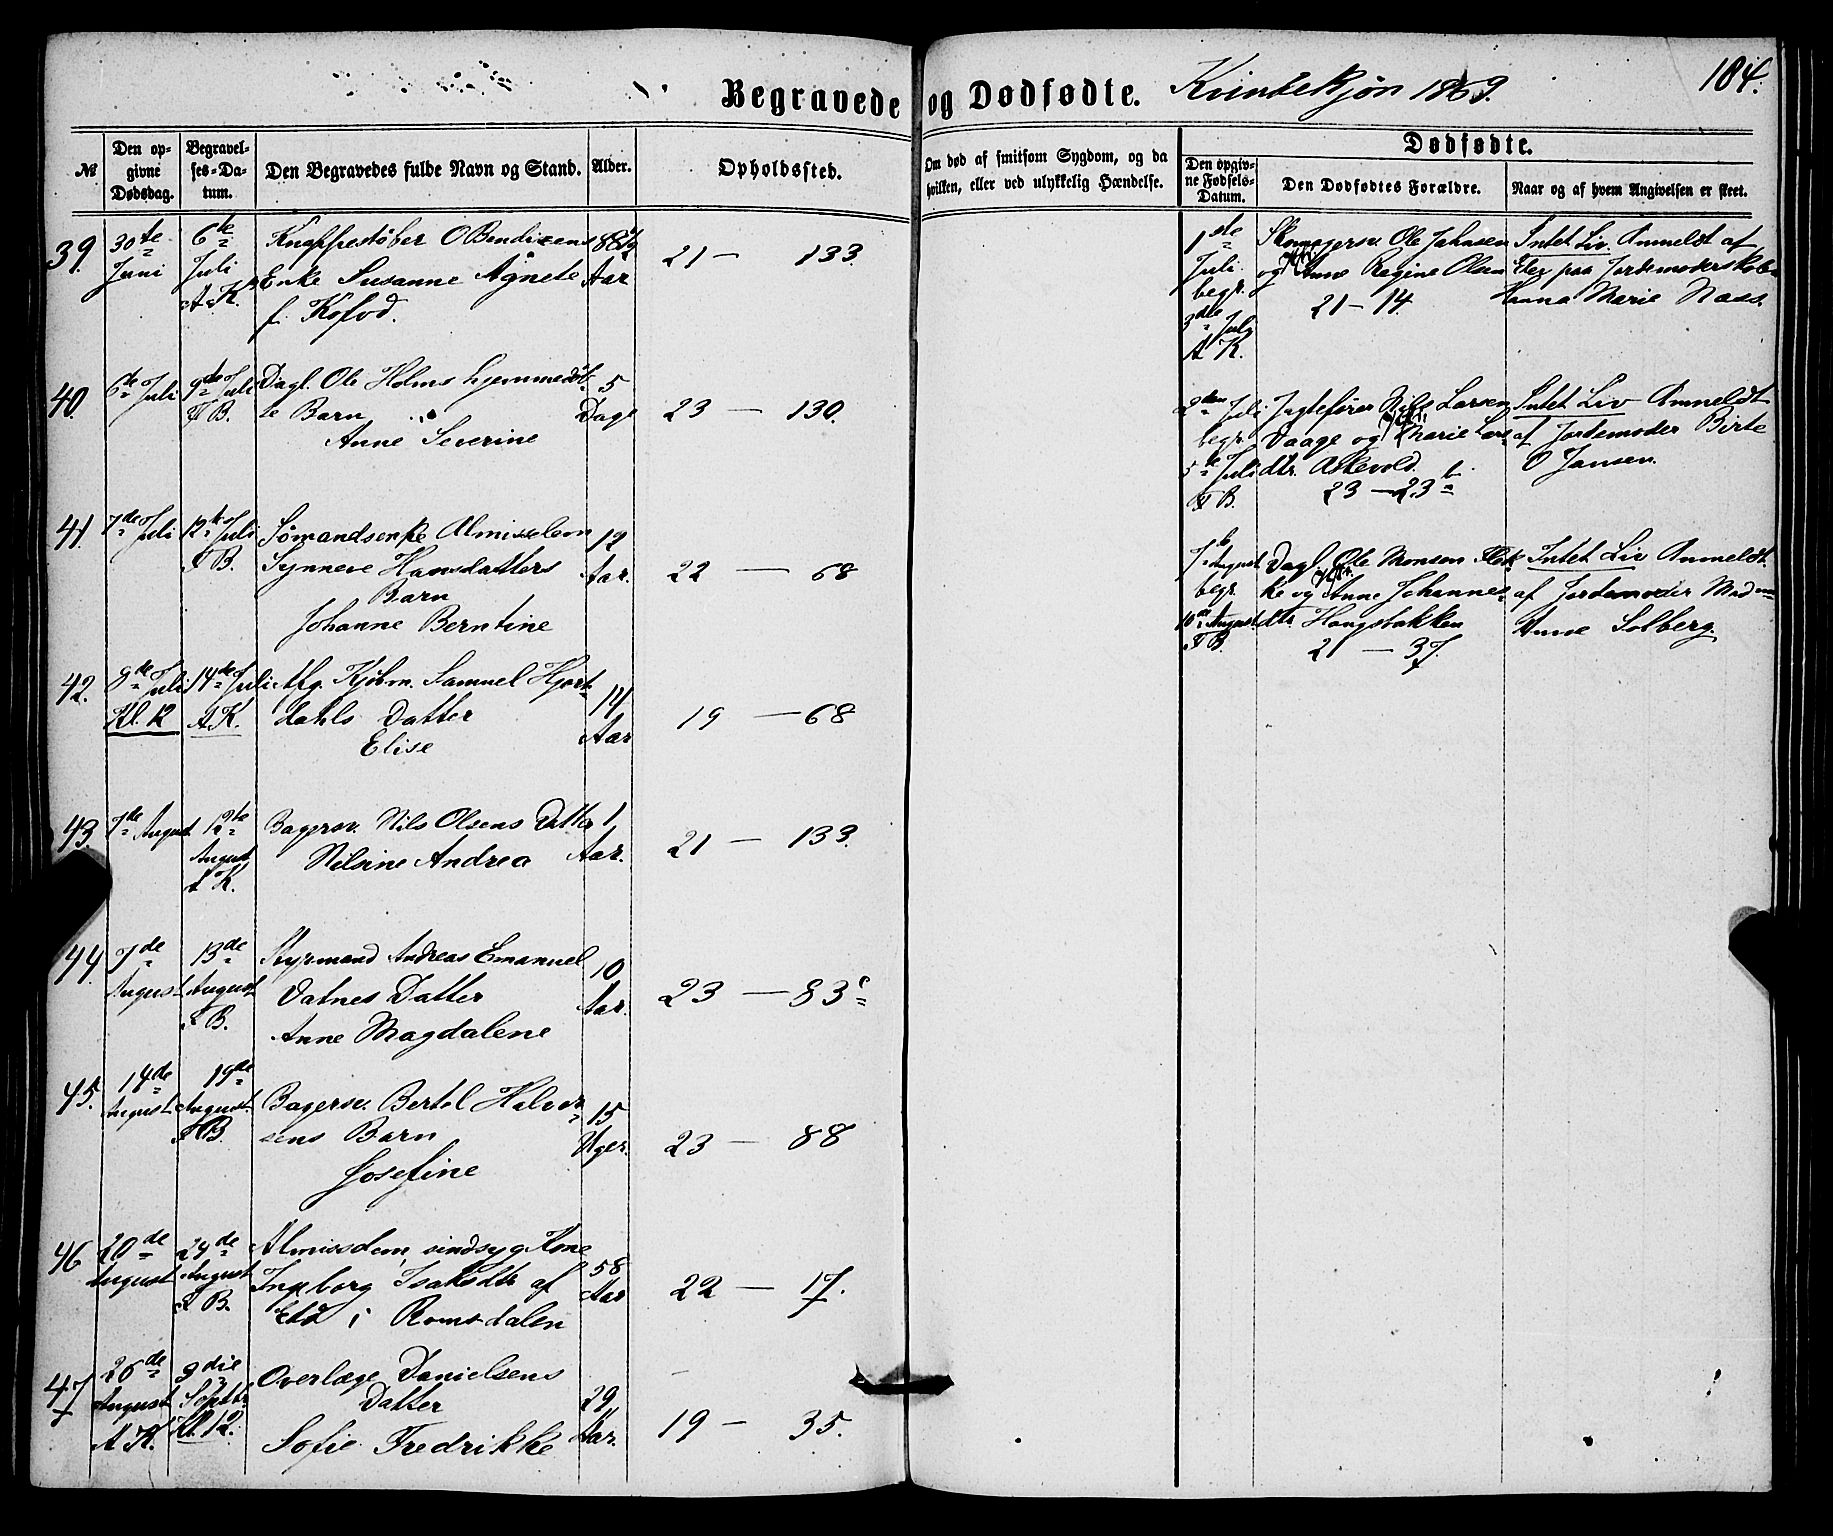 Begravede og Dødfødte. Kvindekjøn 1869.
184.
№
Den opgivne Dødsdag.
Begravelses-Datum.
Den Begravedes fulde Navn og Stand.
Alder.
Opholdssted.
Om død af smitsom Sygdom, og da hvilken, eller ved ulykkelig Hændelse.
Dødfødte.
Den opgivne Fødsels-Datum.
Den Dødfødtes Forældre.
Naar og af hvem Angivelsen er skeet.
39. 30te 6te Knappestøber O Bendixens 88 21 — 133.
Juni Juli Enke Susanne Agnete Aar
A.K. f. Kofod.
40. 6te Juli 9de Juli Dagl. Ole Holms hjemmedøb- 5
T B. te Barn Dage 23 — 130.
Anne Severine
41. 7de Juli 12te Juli Sømandsenke Almisselem 12
T B. Synneve Hansdatters Aar. 22 — 68
Barn
Johanne Berntine
42. 9de Juli 14de Juli Afg. Kjøbm. Samuel Hjort- 14
Kl. 12 A K. dahls Datter Aar 19 — 68
Elise
43. 7de August 12te Bagersv. Nils Olsens Datter 1
August Nilsine Andrea Aar. 21 — 133.
A K.
44. 7de 13de Styrmand Andreas Emanuel 10
August August Vatnes Datter Aar. 23 — 83c
T B. Anne Magdalene
45. 14de 19de
August August Bagersv. Bertel Halvor- 15
T B. sens Barn Uger. 23 — 88
Josefine
46 20de 24de Almisselem, sindsyg Kone 58
August August Ingeborg Isaksdtr af Aar 22 — 17.
T B. i Romsdalen
47 26de 3die Overlæge Danielsens
August Septbr. Datter 29
A K. Kl. 12. Sofie Fredrikke Aar. 19 — 35.
1ste Skomagersv. Ole Johnsen Intet Liv. Anmeldt af
Juli og Anne Regine Olsen Elev paa Jordemoderskolen
begr. 21 — 14. Hanna Marie Naess.
3die July
A K.
2den Juli Jagtefører Nils Larsen Intet Liv Anmeldt
begr. Vaage og Marie Lars- af Jordemoder Birte
5te Juli dtr. Askevold. O Jansen.
T B. 23 — 23b
7de August Dagl. Ole Monsen Intet Liv Anmeldt
begr. ke og Anne Johannes- af Jordemoder Mad
10de August dtr. Haugsbakken Anne Solberg
T B. 21 — 37.